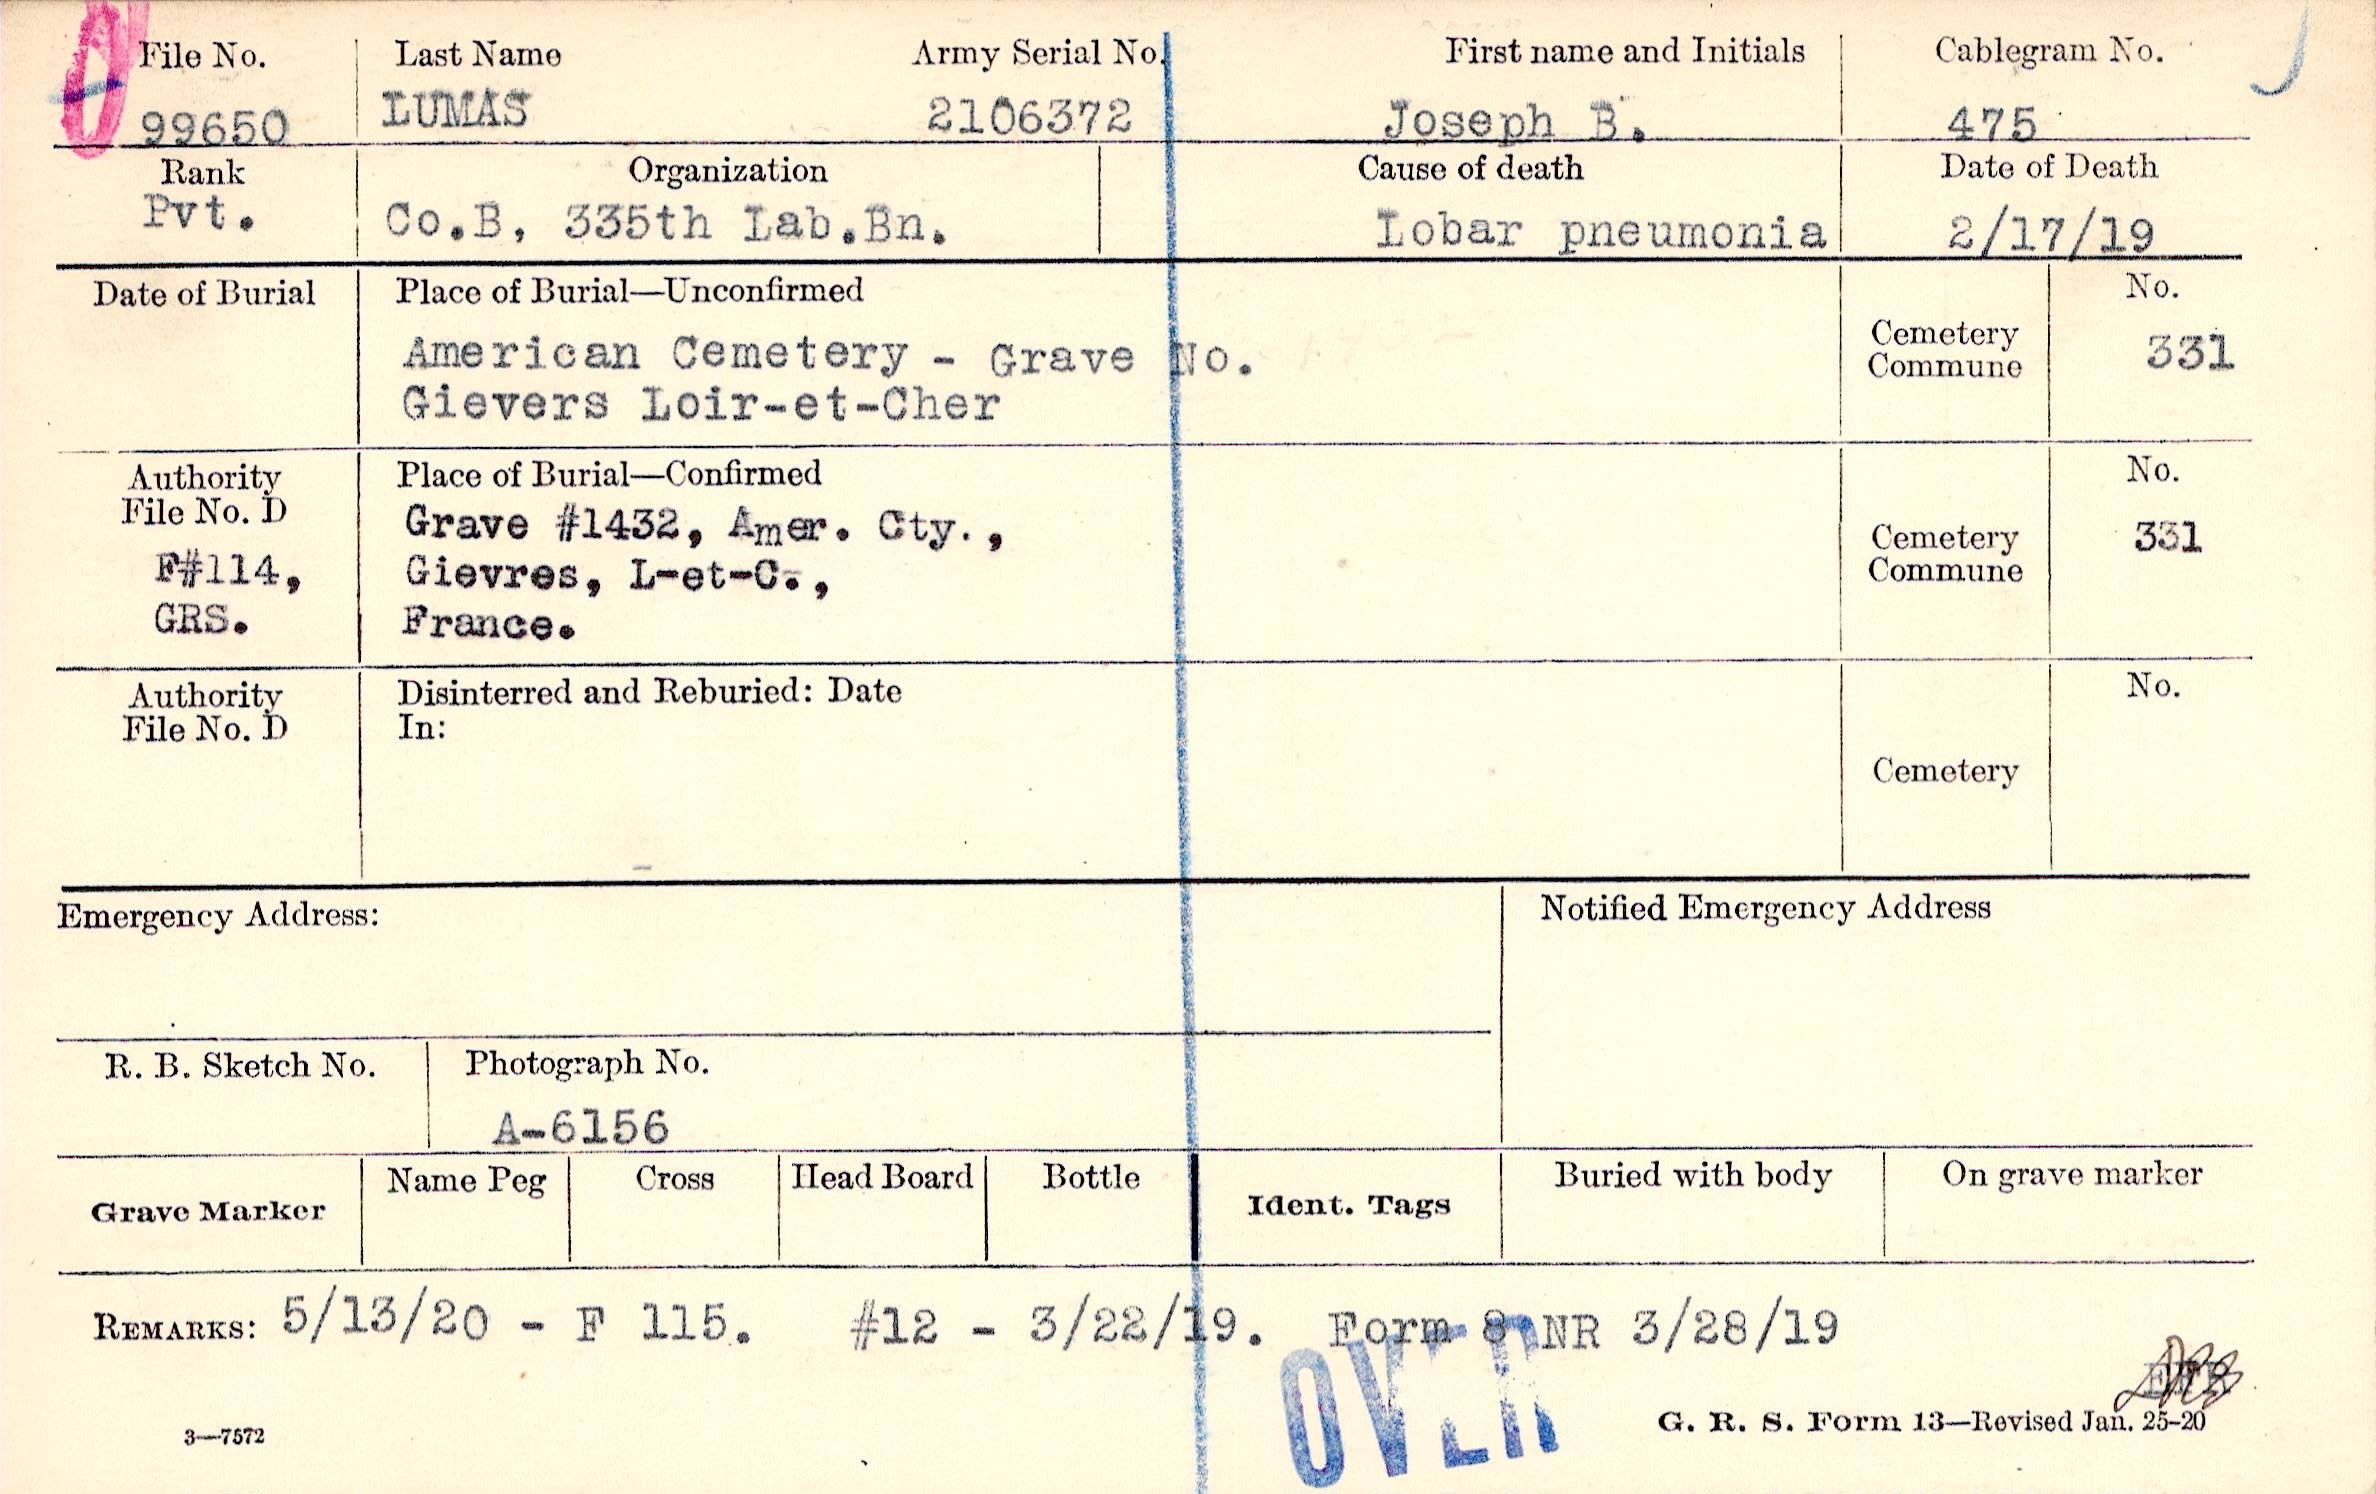 File No. Last Name Army Serial No. First name and Initials Cablegram No.
99650 LUMAS 2106372 Joseph B. 475
Rank Organization Cause of death Date of Death
Pvt. Co.B, 335th Lab.Bn. Lobar pneumonia 2/17/19
Date of Burial Place of Burial—Unconfirmed No.
American Cemetery - Grave No. Cemetery Commune 331
Gievers Loir-et-Cher
Authority File No. D Place of Burial—Confirmed No.
Grave #1432, Amer. Cty.,
F#114, Gievres, L-et-C., Cemetery Commune 331
GRS. France.
Authority Disinterred and Reburied: Date No.
File No. D In:
Cemetery
Emergency Address: Notified Emergency Address
R. B. Sketch No. Photograph No.
A-6156
Grave Marker Name Peg Cross Head Board Bottle Ident. Tags Buried with body On grave marker
REMARKS: 5/13/20 - F 115. #12 - 3/22/19. Form 8 NR 3/28/19
OVER
3—7572 G. R. S. Form 13—Revised Jan. 25-20